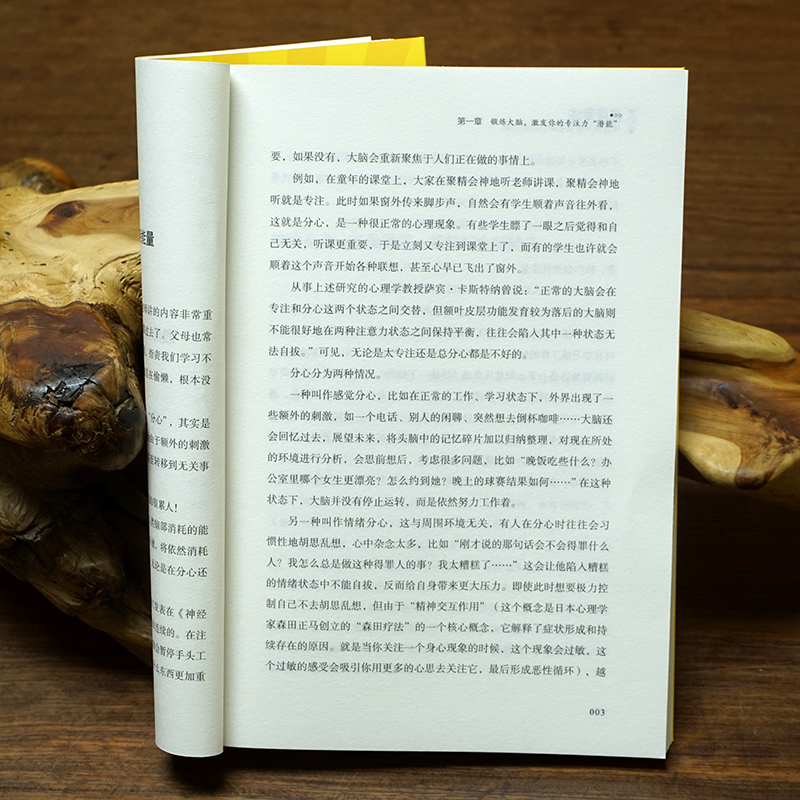 能量
解讲的内容非常重
过去了。父母也常
指责我们学习不
在偷懒，根本没
“分心”，其实是
由于额外的刺激
转移到无关事
很累人！
脑部消耗的能
，将依然消耗
论是在分心还
发表在《神经
连续的。在注
会暂停手头工
么东西更加重
第一章 锻炼大脑，激发你的专注力“潜能”
要，如果没有，大脑会重新聚焦于人们正在做的事情上。
例如，在童年的课堂上，大家在聚精会神地听老师讲课，聚精会神地
听就是专注。此时如果窗外传来脚步声，自然会有学生顺着声音往外看，
这就是分心，是一种很正常的心理现象。有些学生瞟了一眼之后觉得和自
己无关，听课更重要，于是立刻又专注到课堂上了，而有的学生也许就会
顺着这个声音开始各种联想，甚至心早已飞出了窗外。
从事上述研究的心理学教授萨宾·卡斯特纳曾说：“正常的大脑会在
专注和分心这两个状态之间交替，但额叶皮层功能发育较为落后的大脑则
不能很好地在两种注意力状态之间保持平衡，往往会陷入其中一种状态无
法自拔。”可见，无论是太专注还是总分心都是不好的。
分心分为两种情况。
一种叫作感觉分心，比如在正常的工作、学习状态下，外界出现了一
些额外的刺激，如一个电话、别人的闲聊、突然想去倒杯咖啡……大脑还
会回忆过去，展望未来，将头脑中的记忆碎片加以归纳整理，对现在所处
的环境进行分析，会思前想后，考虑很多问题，比如“晚饭吃些什么？办
公室里哪个女生更漂亮？怎么约到她？晚上的球赛结果如何……”在这种
状态下，大脑并没有停止运转，而是依然努力工作着。
另一种叫作情绪分心，这与周围环境无关，有人在分心时往往会习
惯性地胡思乱想，心中杂念太多，比如“刚才说的那句话会不会得罪什么
人？我怎么总是做这种得罪人的事？我太糟糕了……”这会让他陷入糟糕
的情绪状态中不能自拔，反而给自身带来更大压力。即使此时想要极力控
制自己不去胡思乱想，但由于“精神交互作用”（这个概念是日本心理学
家森田正马创立的“森田疗法”的一个核心概念，它解释了症状形成和持
续存在的原因。就是当你关注一个身心现象的时候，这个现象会过敏，这
个过敏的感受会吸引你用更多的心思去关注它，最后形成恶性循环），越
003